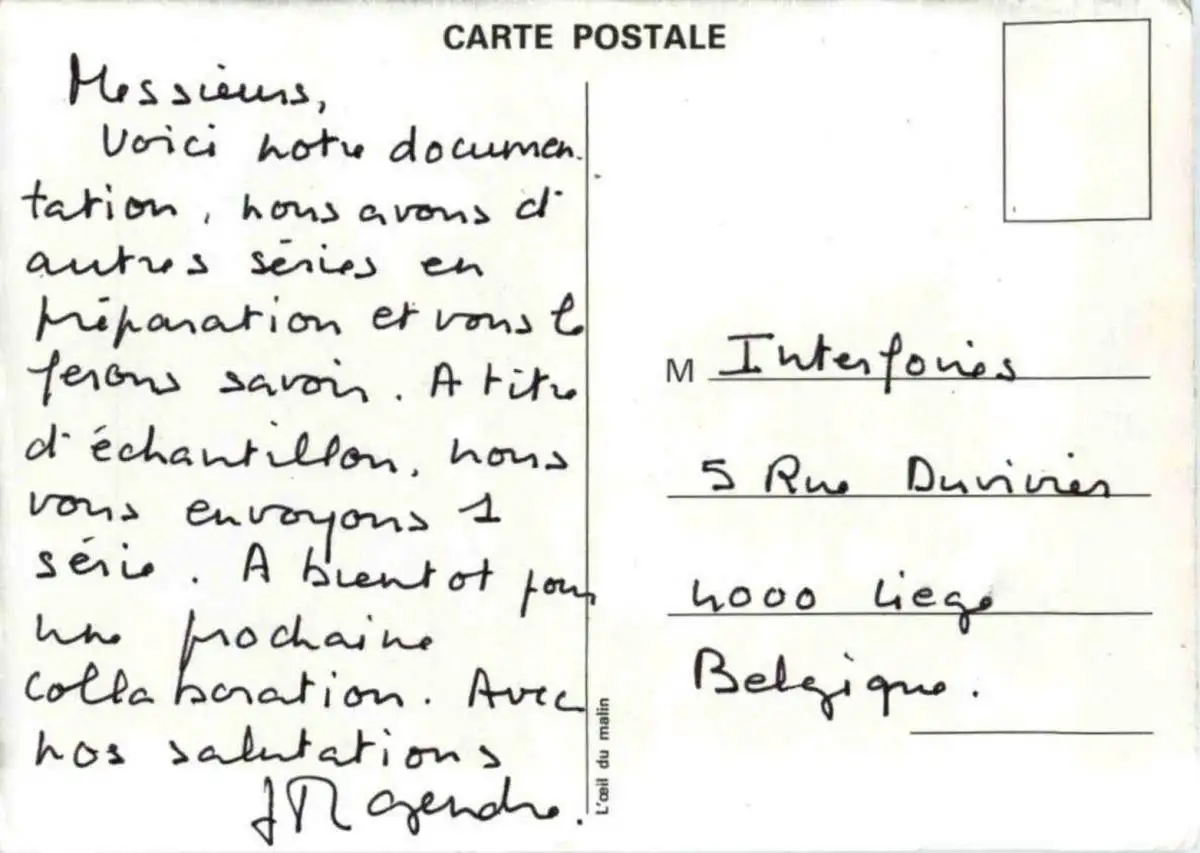 CARTE POSTALE
Messieurs,
Voici notre documen-
tation, nous avons d'
autres séries en
préparation et vous le
ferons savoir. A titre
d'échantillon, nous
vous envoyons 1
série. A bientot pour
une prochaine
collaboration. Avec
nos salutations
L'œil du malin
M Interfories
5 Rue Duvivier
4000 Liege
Belgique.